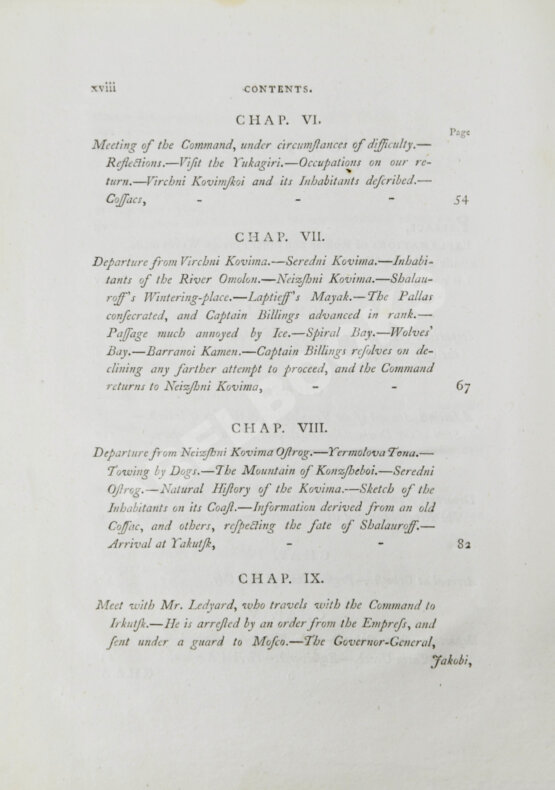 xviii CONTENTS.
CHAP. VI.
Page
Meeting of the Command, under circumſtances of difficulty.—
Reflections.—Viſit the Yukagiri.—Occupations on our re-
turn.—Virchni Kovimſkoi and its Inhabitants deſcribed.—
Coſſacs, - - - 54
CHAP. VII.
Departure from Virchni Kovima.—Seredni Kovima.—Inhabi-
tants of the River Omolon.—Neizſhni Kovima.—Shalau-
roff's Wintering-place.—Laptieff's Mayak.—The Pallas
conſecrated, and Captain Billings advanced in rank.—
Paſſage much annoyed by Ice.—Spiral Bay.—Wolves'
Bay.—Barranoi Kamen.—Captain Billings reſolves on de-
clining any farther attempt to proceed, and the Command
returns to Neizſhni Kovima, - - 67
CHAP. VIII.
Departure from Neizſhni Kovima Oſtrog.—Yermolova Tona.—
Towing by Dogs.—The Mountain of Konzſheboi.—Seredni
Oſtrog.—Natural Hiſtory of the Kovima.—Sketch of the
Inhabitants on its Coaſt.—Information derived from an old
Coſſac, and others, reſpecting the fate of Shalauroff.—
Arrival at Yakutſk, - - 82
CHAP. IX.
Meet with Mr. Ledyard, who travels with the Command to
Irkutſk.—He is arreſted by an order from the Empreſs, and
ſent under a guard to Moſco.—The Governor-General,
Jakobi,